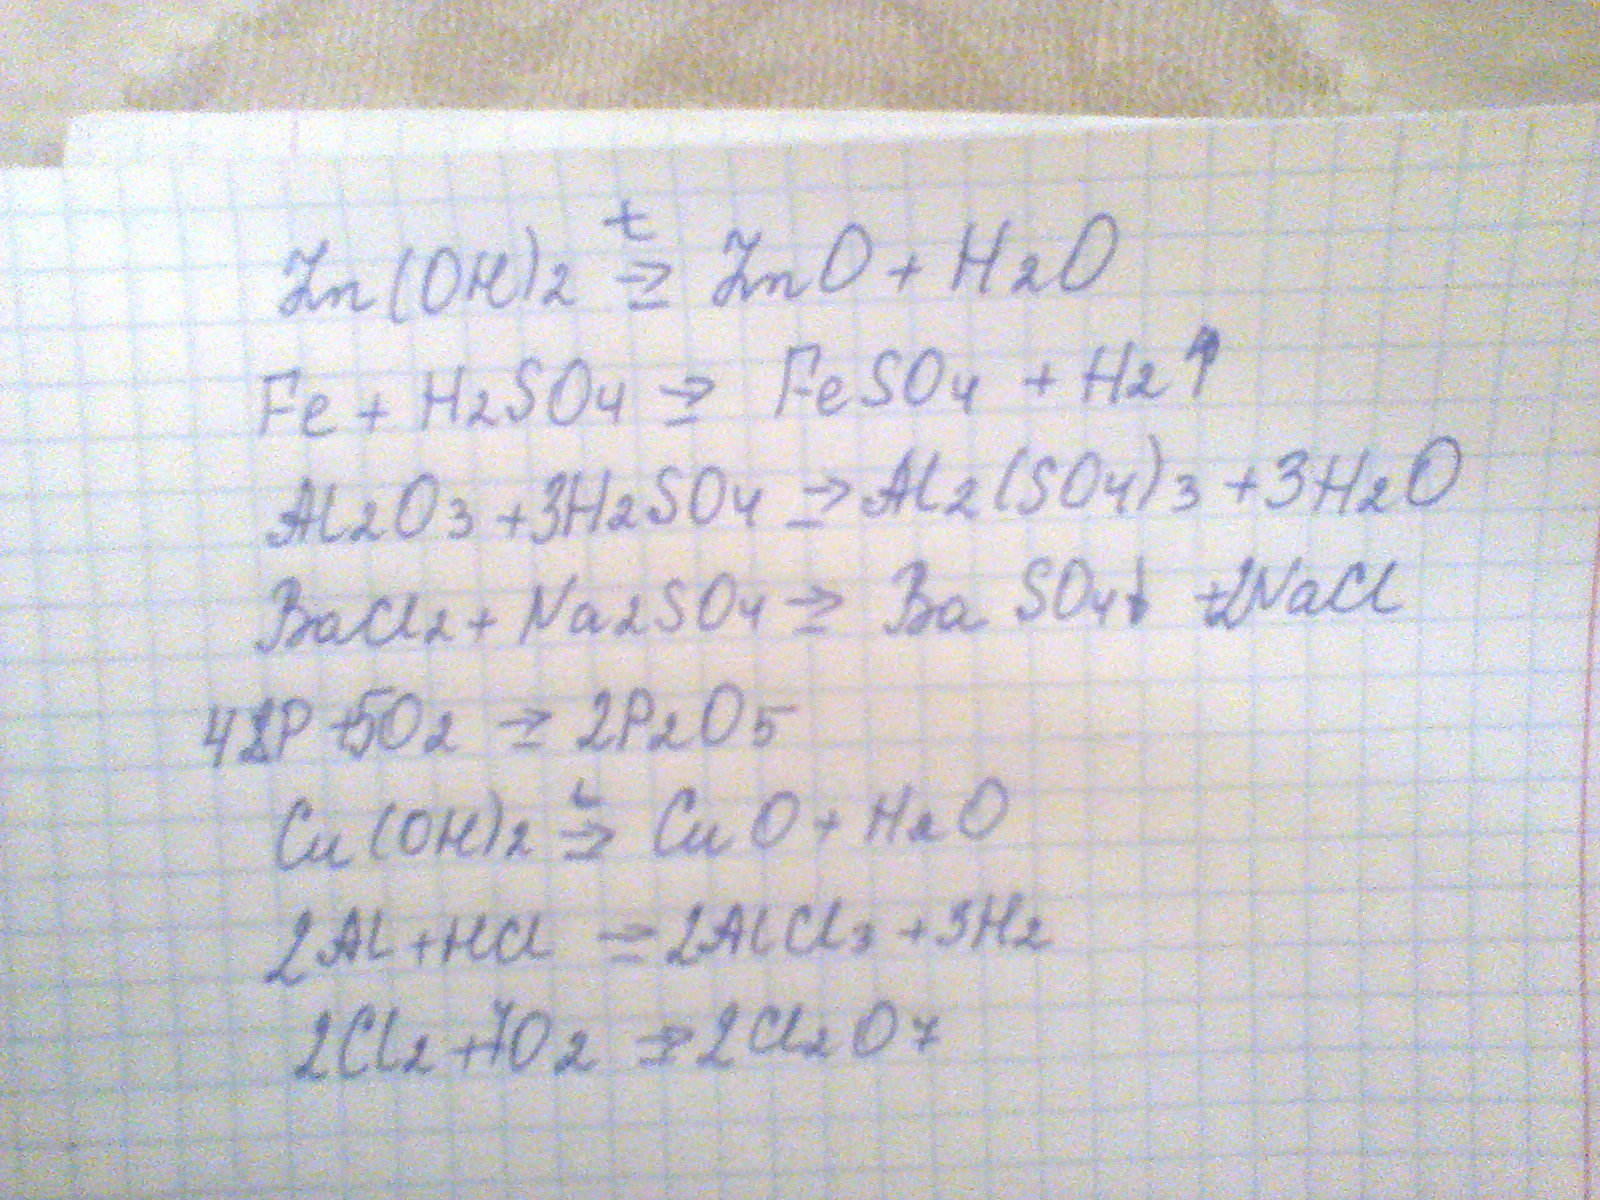 Zn(OH)2 t⇒ ZnO + H2O
Fe + H2SO4 ⇒ FeSO4 + H2↑
Al2O3 + 3H2SO4 ⇒ Al2(SO4)3 + 3H2O
BaCl2 + Na2SO4 ⇒ BaSO4↓ + 2NaCl
4P + 5O2 ⇒ 2P2O5
Cu(OH)2 t⇒ CuO + H2O
2Al + HCl ⇒ 2AlCl3 + 3H2
2Cl2 + 7O2 ⇒ 2Cl2O7